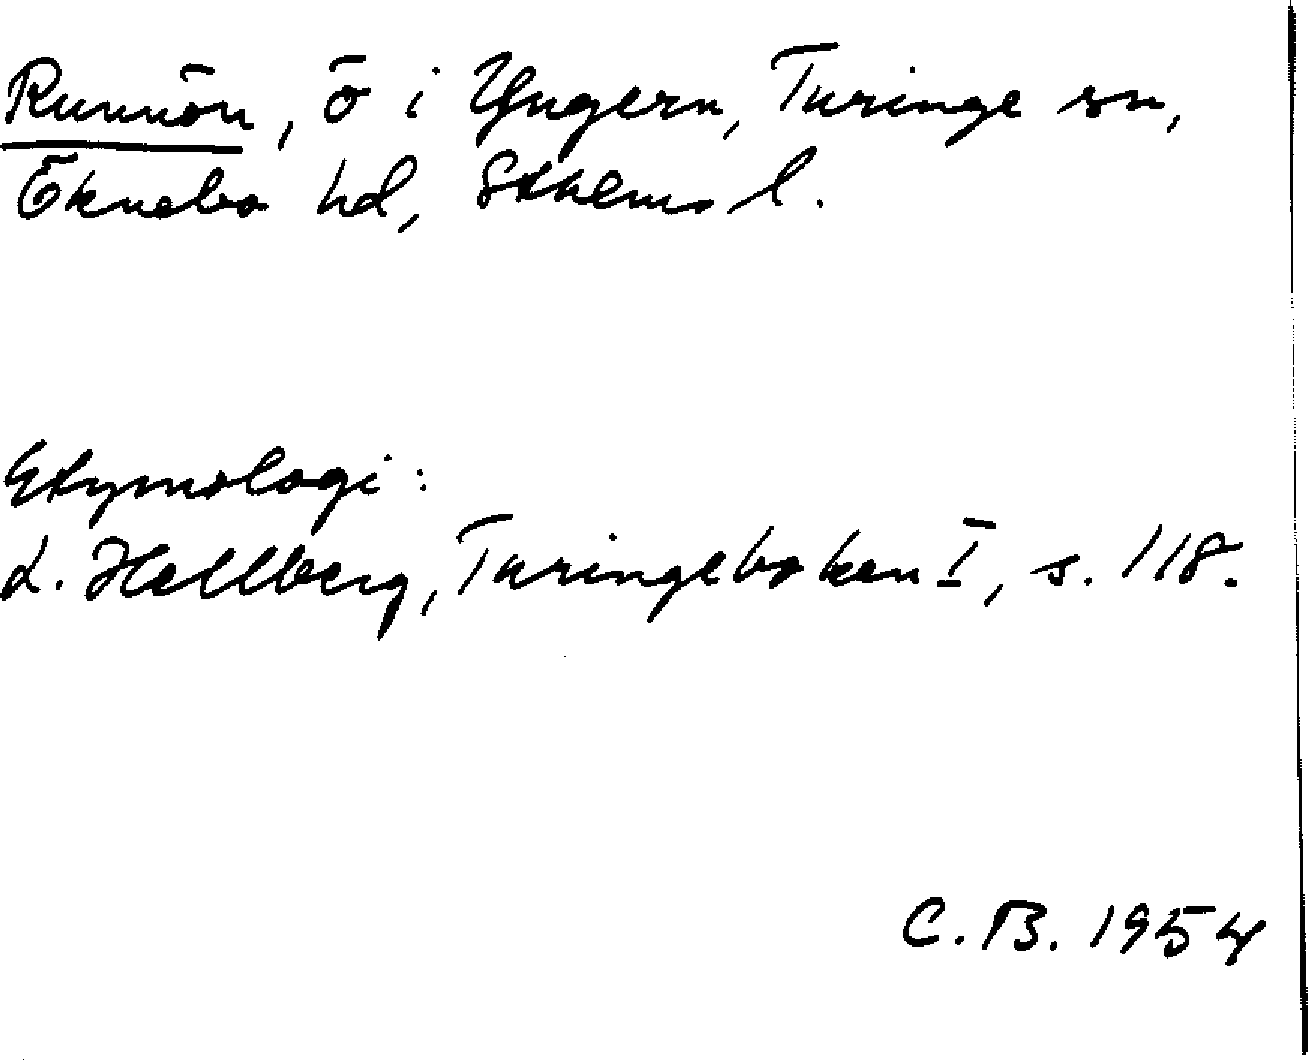 Runnön, ö i Yngern, Turinge sn,
Öknebo hd, Sthlms l.
Etymologi:
L. Hellberg, Turingeboken I, s. 118.
C.B. 1954